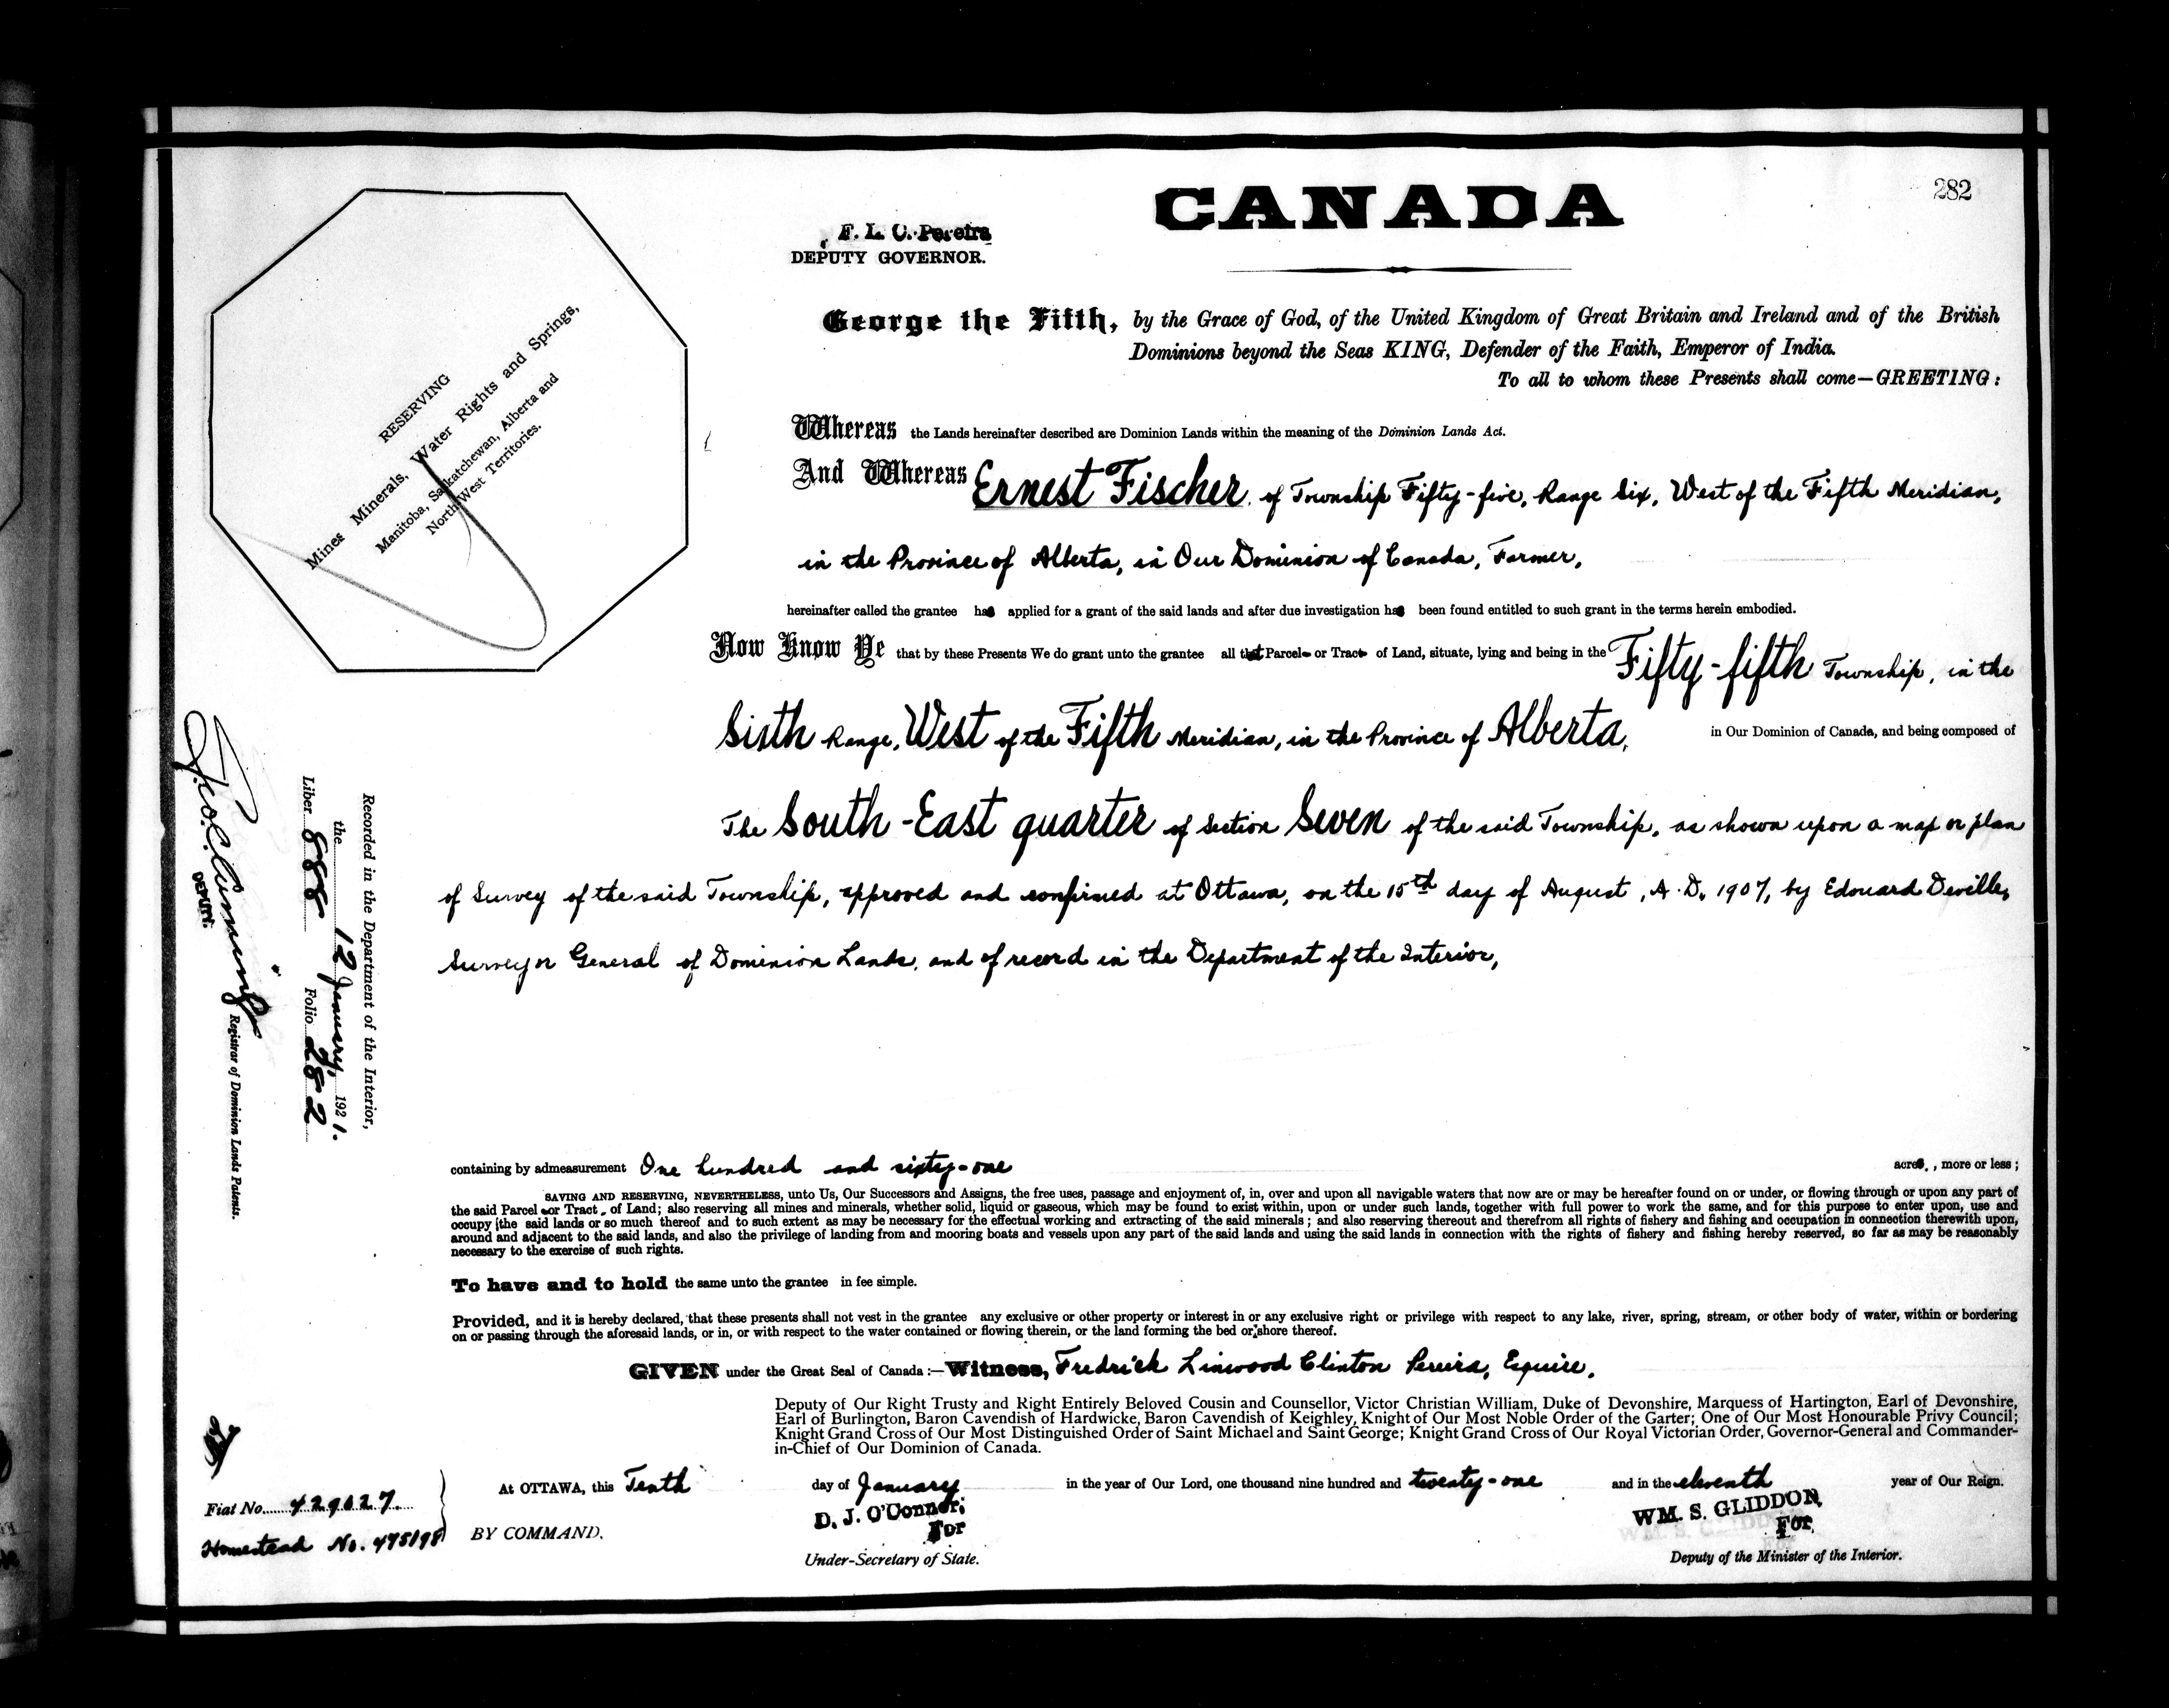 282
CANADA
F. L. C. Pereira
DEPUTY GOVERNOR.
George the Fifth, by the Grace of God, of the United Kingdom of Great Britain and Ireland and of the British
Dominions beyond the Seas KING, Defender of the Faith, Emperor of India.
To all to whom these Presents shall come—GREETING:
RESERVING
Mines Minerals, Water Rights and Springs,
Manitoba, Saskatchewan, Alberta and
North West Territories.
Whereas the Lands hereinafter described are Dominion Lands within the meaning of the Dominion Lands Act.
And Whereas Ernest Fischer, of Township Fifty-five, Range Six, West of the Fifth Meridian,
in the Province of Alberta, in Our Dominion of Canada, Farmer,
hereinafter called the grantee has applied for a grant of the said lands and after due investigation has been found entitled to such grant in the terms herein embodied.
Now Know Ye that by these Presents We do grant unto the grantee all that Parcel or Tract of Land, situate, lying and being in the Fifty-fifth Township, in the
Sixth Range, West of the Fifth Meridian, in the Province of Alberta, in Our Dominion of Canada, and being composed of
The South-East quarter of Section Seven of the said Township, as shown upon a map or plan
of Survey of the said Township, approved and confirmed at Ottawa, on the 15th day of August, A.D. 1907, by Edouard Deville,
Surveyor General of Dominion Lands, and of record in the Department of the Interior,
Recorded in the Department of the Interior,
the 12 January, 1921.
Liber 888 Folio 282
DEPUTY.
Registrar of Dominion Lands Patents.
containing by admeasurement One hundred and sixty-one acres, more or less;
SAVING AND RESERVING, NEVERTHELESS, unto Us, Our Successors and Assigns, the free uses, passage and enjoyment of, in, over and upon all navigable waters that now are or may be hereafter found on or under, or flowing through or upon any part of
the said Parcel or Tract of Land; also reserving all mines and minerals, whether solid, liquid or gaseous, which may be found to exist within, upon or under such lands, together with full power to work the same, and for this purpose to enter upon, use and
occupy the said lands or so much thereof and to such extent as may be necessary for the effectual working and extracting of the said minerals; and also reserving thereout and therefrom all rights of fishery and fishing and occupation in connection therewith upon,
around and adjacent to the said lands, and also the privilege of landing from and mooring boats and vessels upon any part of the said lands and using the said lands in connection with the rights of fishery and fishing hereby reserved, so far as may be reasonably
necessary to the exercise of such rights.
To have and to hold the same unto the grantee in fee simple.
Provided, and it is hereby declared, that these presents shall not vest in the grantee any exclusive or other property or interest in or any exclusive right or privilege with respect to any lake, river, spring, stream, or other body of water, within or bordering
on or passing through the aforesaid lands, or in, or with respect to the water contained or flowing therein, or the land forming the bed or shore thereof.
GIVEN under the Great Seal of Canada:—Witness, Fredrick Linwood Clinton Pereira, Esquire,
Deputy of Our Right Trusty and Right Entirely Beloved Cousin and Counsellor, Victor Christian William, Duke of Devonshire, Marquess of Hartington, Earl of Devonshire,
Earl of Burlington, Baron Cavendish of Hardwicke, Baron Cavendish of Keighley, Knight of Our Most Noble Order of the Garter; One of Our Most Honourable Privy Council;
Knight Grand Cross of Our Most Distinguished Order of Saint Michael and Saint George; Knight Grand Cross of Our Royal Victorian Order, Governor-General and Commander-
in-Chief of Our Dominion of Canada.
At OTTAWA, this Tenth day of January in the year of Our Lord, one thousand nine hundred and twenty-one and in the eleventh year of Our Reign.
Fiat No. 429027.
Homestead No. 475198
BY COMMAND.
D. J. O'Connor,
For
Under-Secretary of State.
WM. S. GLIDDON,
For
Deputy of the Minister of the Interior.